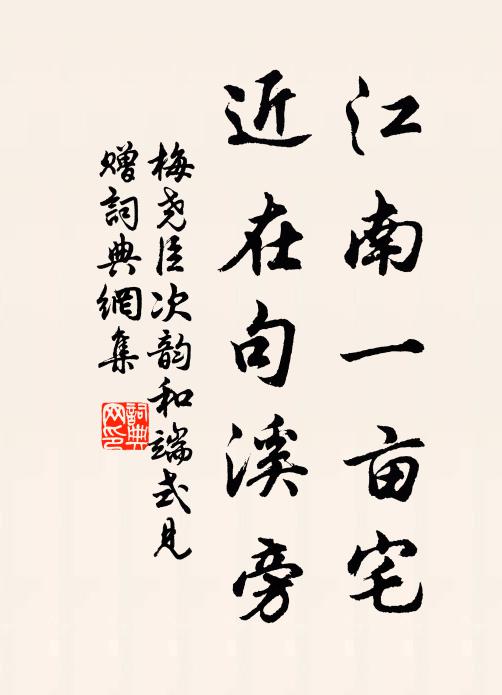 江南一亩宅
近在句溪旁
梅尧臣次韵和端式见
赠词典網集
詞典
网印